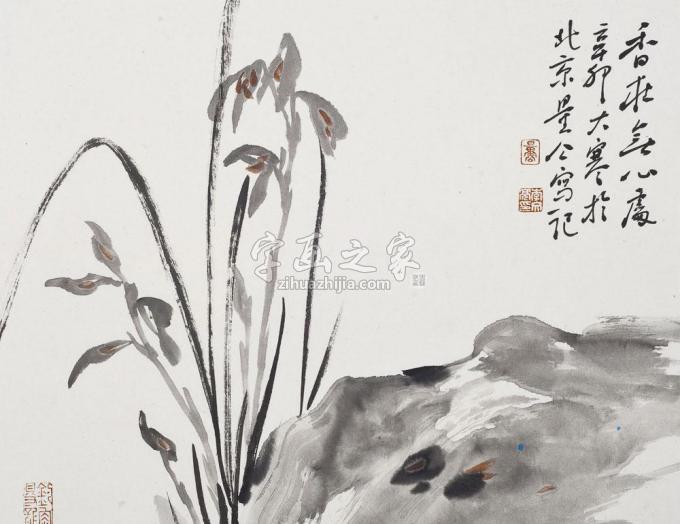 香在無心處
辛卯大寒於
北京量公寫記
字画之家
zihuazhijia.com